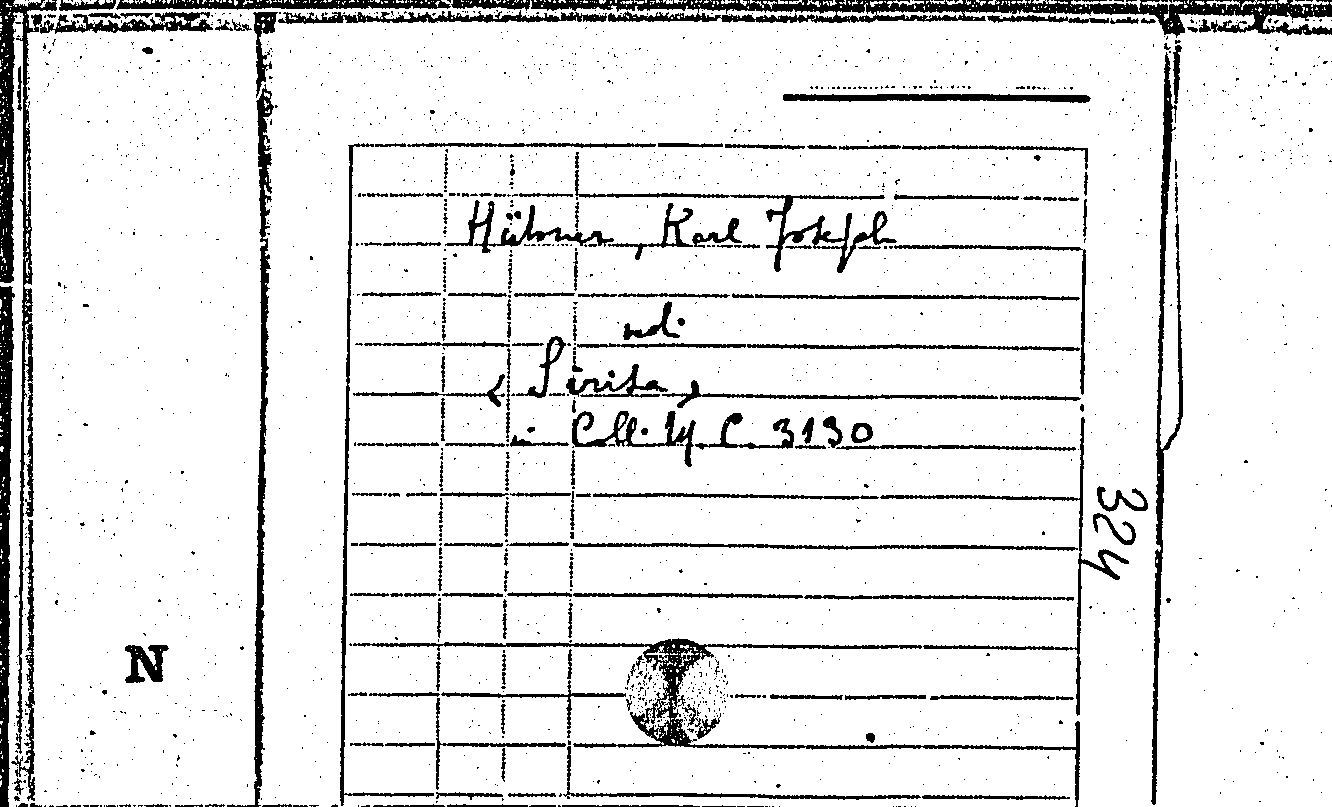 Hübner, Karl Joseph
red.
< Sirisa >
in Coll. M. C. 3130
324
N